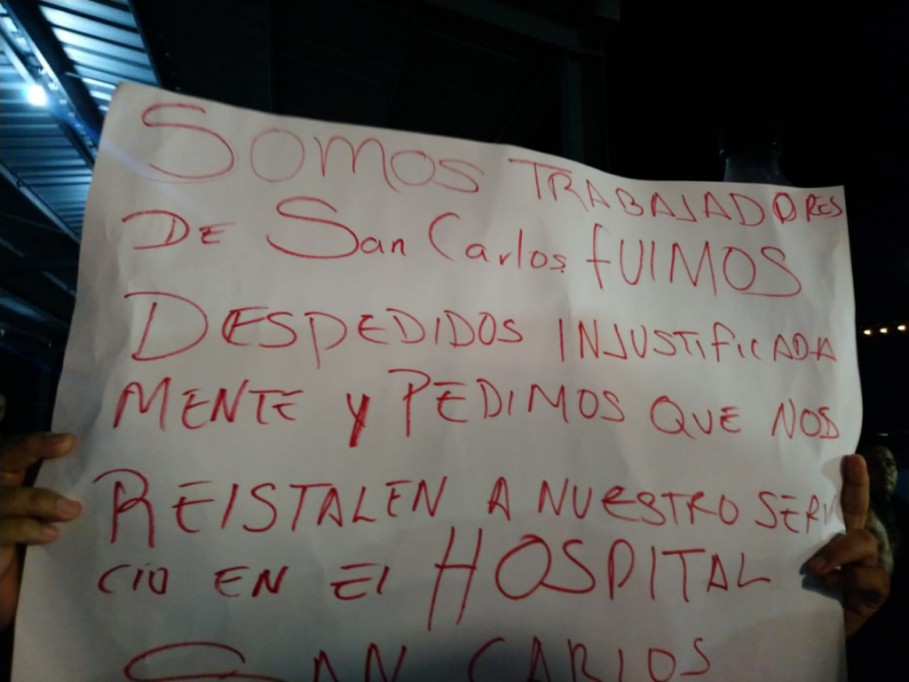 SOMOS TRABAJADORES
DE San Carlos fUIMOS
DESPEDIDOS INJUSTIFICADA
MENTE Y PEDIMOS QUE NOS
REISTALEN A NUESTRO SERV
CIO EN El HOSPITAL
SAN CARLOS